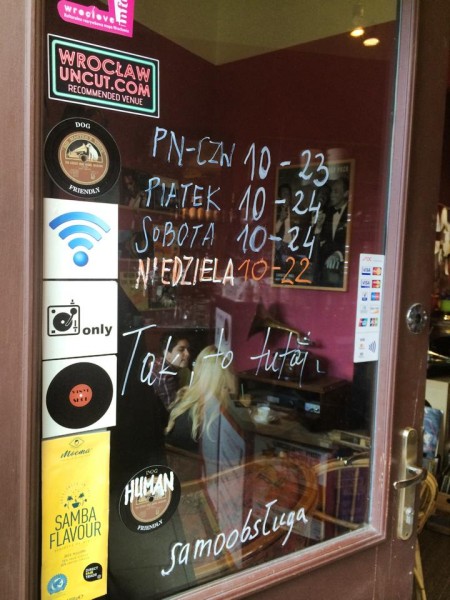 wroclove
WROCŁAW
UNCUT.COM
RECOMMENDED VENUE
DOG
FRIENDLY
PN-CZW 10-23
PIĄTEK 10-24
SOBOTA 10-24
NIEDZIELA 10-22
only
Tak, to tutaj.
Mooma
SAMBA
FLAVOUR
DOG
HUMAN
FRIENDLY
samoobsługa